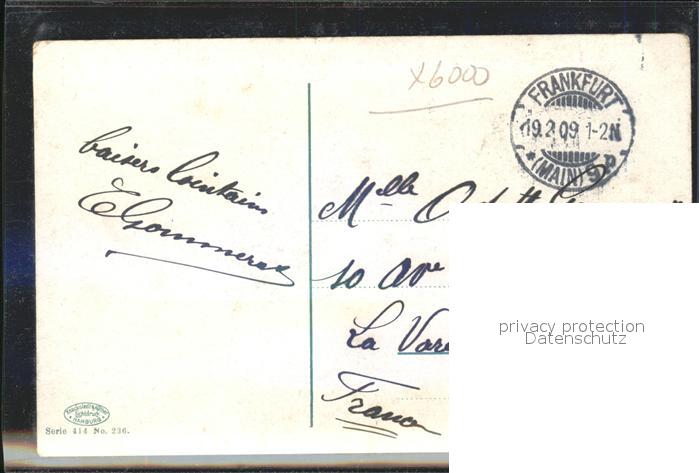 x6000
FRANKFURT
19.2.09.1-2N
*(MAIN)9p
baisers lointains
Mlle
10 ave
La Vare
France
privacy protection
Datenschutz
HAMBURG
Serie 414 No. 236.